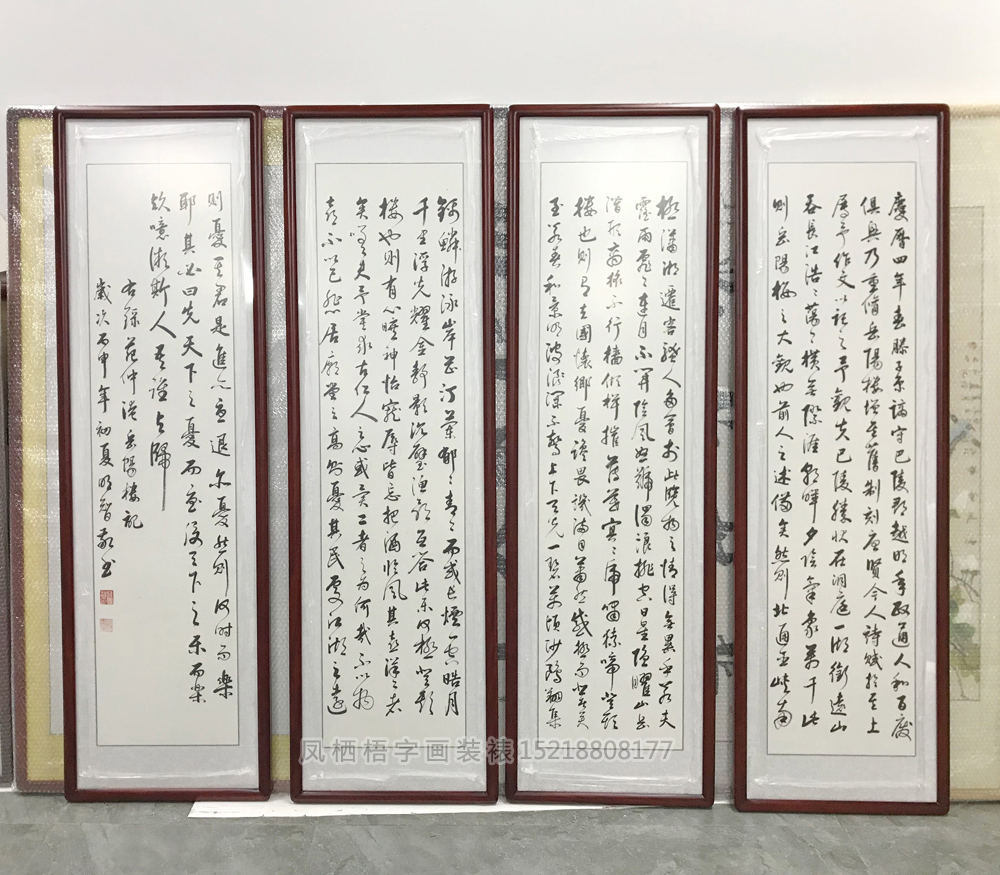 慶曆四年春滕子京謫守巴陵郡越明年政通人和百廢
俱興乃重脩岳陽樓增其舊制刻唐賢今人詩賦於其上
屬予作文以記之予觀夫巴陵勝狀在洞庭一湖銜遠山
吞長江浩浩蕩蕩橫無際涯朝暉夕陰氣象萬千此
則岳陽樓之大觀也前人之述備矣然則北通巫峽南
極瀟湘遷客騷人多會於此覽物之情得無異乎若夫
霪雨霏霏連月不開陰風怒號濁浪排空日星隱曜山岳
潛形商旅不行檣傾楫摧薄暮冥冥虎嘯猿啼登斯
樓也則有去國懷鄉憂讒畏譏滿目蕭然感極而悲者矣
至若春和景明波瀾不驚上下天光一碧萬頃沙鷗翔集
錦鱗游泳岸芷汀蘭郁郁青青而或長煙一空皓月
千里浮光耀金靜影沉璧漁歌互答此樂何極登斯
樓也則有心曠神怡寵辱皆忘把酒臨風其喜洋洋者
矣嗟夫予嘗求古仁人之心或異二者之為何哉不以物
喜不以己悲居廟堂之高則憂其民處江湖之遠
則憂其君是進亦憂退亦憂然則何時而樂
耶其必曰先天下之憂而憂後天下之樂而樂
歟噫微斯人吾誰與歸
右錄范仲淹岳陽樓記
歲次丙申年初夏明智敬書
凤栖梧字画装裱15218808177